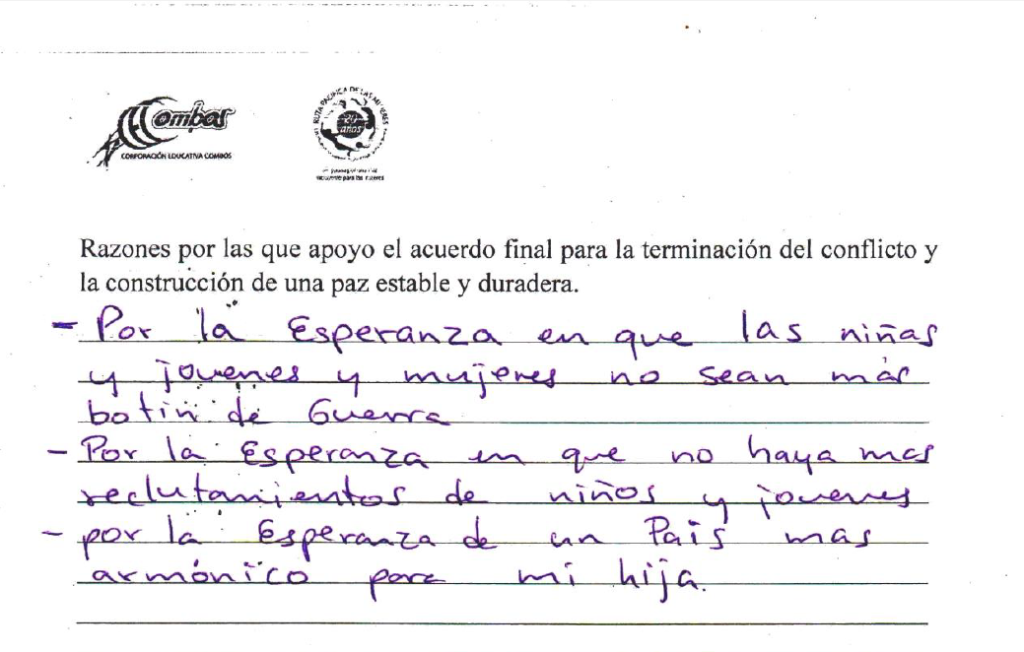 ombos
CORPORACIÓN EDUCATIVA COMBOS
RUTA PACIFICA DE LAS MUJERES
20
años
Razones por las que apoyo el acuerdo final para la terminación del conflicto y
la construcción de una paz estable y duradera.
- Por la Esperanza en que las niñas
y jovenes y mujeres no sean más
botin de Guerra
- Por la Esperanza en que no haya mas
reclutamientos de niños y jovenes
- por la Esperanza de un Pais mas
armónico para mi hija.